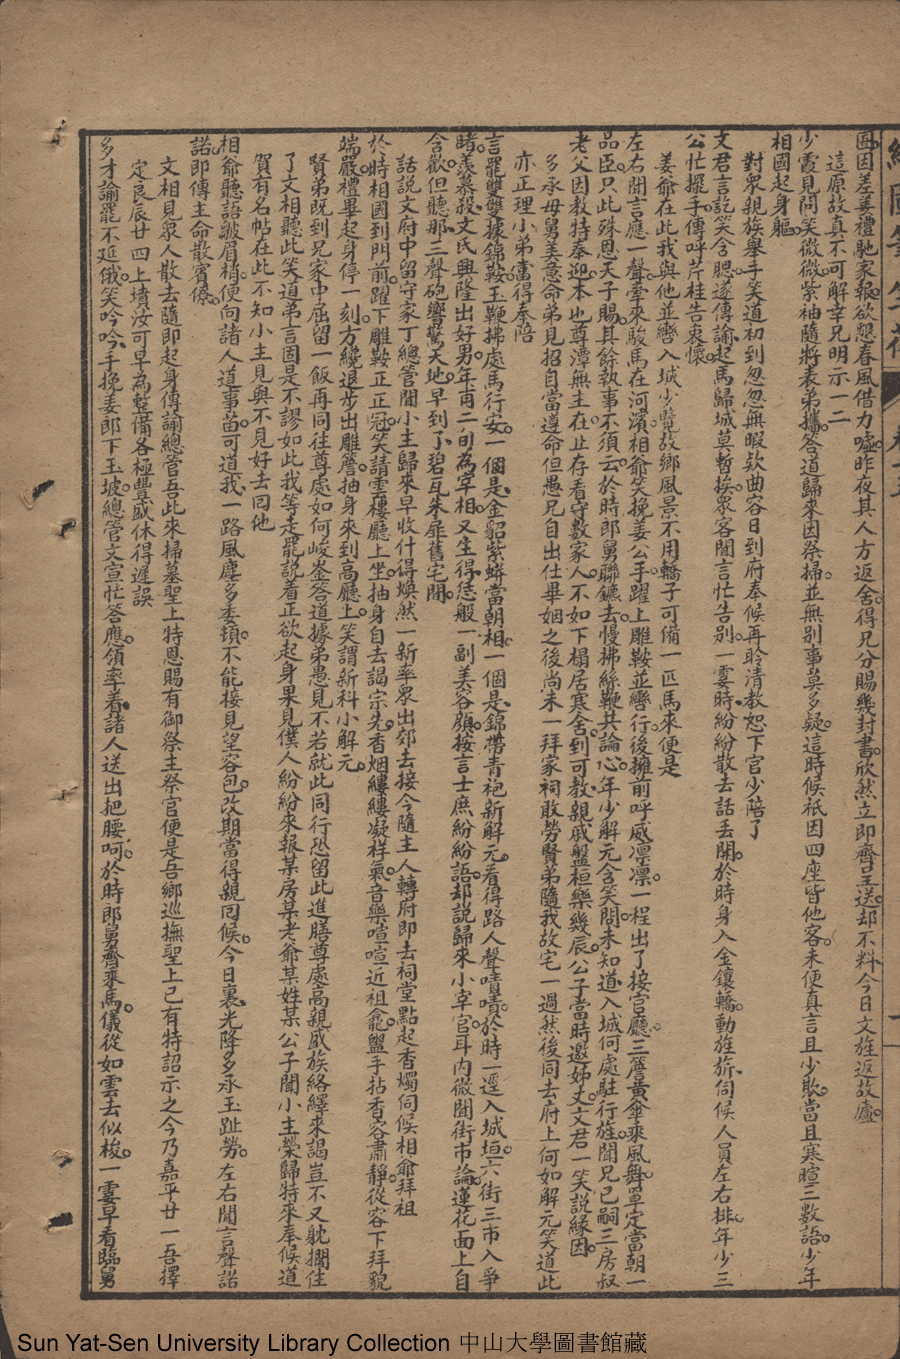 因差姜禮馳家報欲懇春風借力噓昨夜其人方返舍得兄分賜幾封書欣然立即齊呈送却不料今日文旌返故廬
這原故真不可解幸兄明示一二
少霞見問笑微微紫袖隨將表弟攜答道歸來因祭掃並無别事莫多疑這時候祇因四座皆他客未便真言且少欺當且寒暄三數語少年
相國起身軀
對眾親族舉手笑道初到忽忽無暇欵曲容日到府奉候再聆清教恕下官少陪了
文君言訖笑含腮遂傳諭起馬歸城莫暫挨眾客聞言忙告别一霎時紛紛散去話丢開於時身入金鑲轎動旌旂伺候人員左右排年少三
公忙擺手傳呼芹桂告衷懷
姜爺在此我與他並轡入城少覽故鄉風景不用轎子可備一匹馬來便是
左右聞言應一聲牽來駿馬在河濱相爺笑挽姜公手躍上雕鞍並轡行後擁前呼威凛凛一程出了接官廳三簷黄傘乘風舞單定當朝一
品臣只此殊恩天子賜其餘執事不須云於時郎舅聯鑣去慢拂絲鞭共論心年少解元含笑問未知道入城何處駐行旌聞兄已嗣三房叔
老父因教特奉迎本也尊潭無主在止存看守數家人不如下榻居寒舍到可教親戚盤桓樂幾辰公子當時邀姊丈文君一笑説緣因
多承母舅美意命弟見招自當遵命但愚兄自出仕畢姻之後尚未一拜家祠敢勞賢弟隨我故宅一過然後同去府上何如解元笑道此
亦正理小弟當得奉陪
言罷雙雙據錦鞍玉鞭拂處馬行安一個是金貂紫蟒當朝相一個是錦帶青袍新解元看得路人聲嘖嘖於時一逕入城垣六街三市人爭
睹羨慕殺文氏興隆出好男年甫二旬為宰相又生得恁般一副美容顔接言士庶紛紛語却説歸來小宰官耳内微聞街市論蓮花面上自
含歡但聽那三聲砲響驚天地早到了碧瓦朱扉舊宅閒
話説文府中留守家丁總管聞小主歸來早收什得煥然一新率眾出郊去接今隨主人轉府即去祠堂點起香燭伺候相爺拜祖
於時相國到門前躍下雕鞍正正冠笑請雲樓廳上坐抽身自去謁宗先香烟縷縷凝祥氣音樂喧喧近祖龕盥手拈香容肅靜從容下拜貌
端嚴禮畢起身停一刻方纔退步出雕簷抽身來到高廳上笑謂新科小解元
賢弟既到兄家中屈留一飯再同往尊處如何峻崟答道據弟愚見不若就此同行恐留此進膳尊處高親戚族絡繹來謁豈不又躭擱住
了文相聽此笑道弟言固是不謬如此我等走罷説着正欲起身果見僕人紛紛來報某房某老爺某姓某公子聞小主榮歸特來奉候道
賀有名帖在此不知小主見與不見好去回他
相爺聽語皺眉梢便向諸人道事苗可道我一路風塵多委頓不能接見望容包改期當得親回候今日裏光降多承玉趾勞左右聞言聲諾
諾即傳主命散賓僚
文相見眾人散去隨即起身傳諭總管吾此來掃墓聖上特恩賜有御祭主祭官便是吾鄉巡撫聖上已有特詔示之今乃嘉平廿一吾擇
定良辰廿四上墳汝可早為整備各極豐盛休得遲誤
多才諭罷不延俄笑吟吟手挽姜郎下玉坡總管文宣忙答應領率着諸人送出把腰呵於時郎舅齊乘馬儀從如雲去似梭一霎早看臨舅
Sun Yat-Sen University Library Collection 中山大學圖書館藏